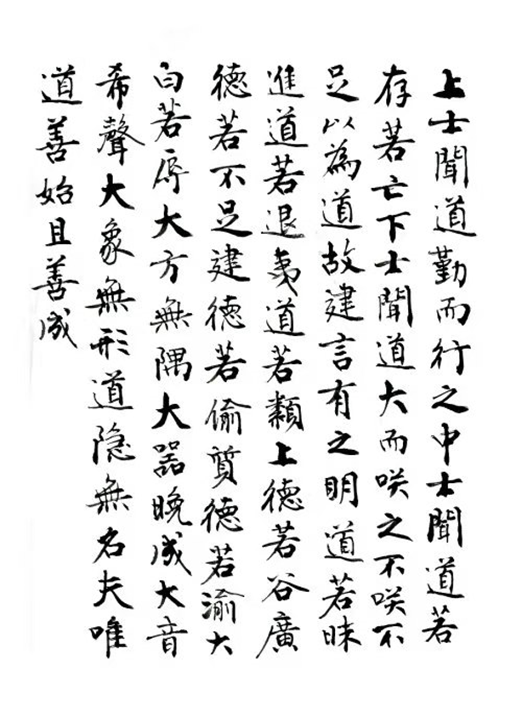 上士聞道勤而行之中士聞道若
存若亡下士聞道大而咲之不咲不
足以為道故建言有之明道若昧
進道若退夷道若纇上德若谷廣
德若不足建德若偷質德若渝大
白若辱大方無隅大器晚成大音
希聲大象無形道隐無名夫唯
道善始且善成